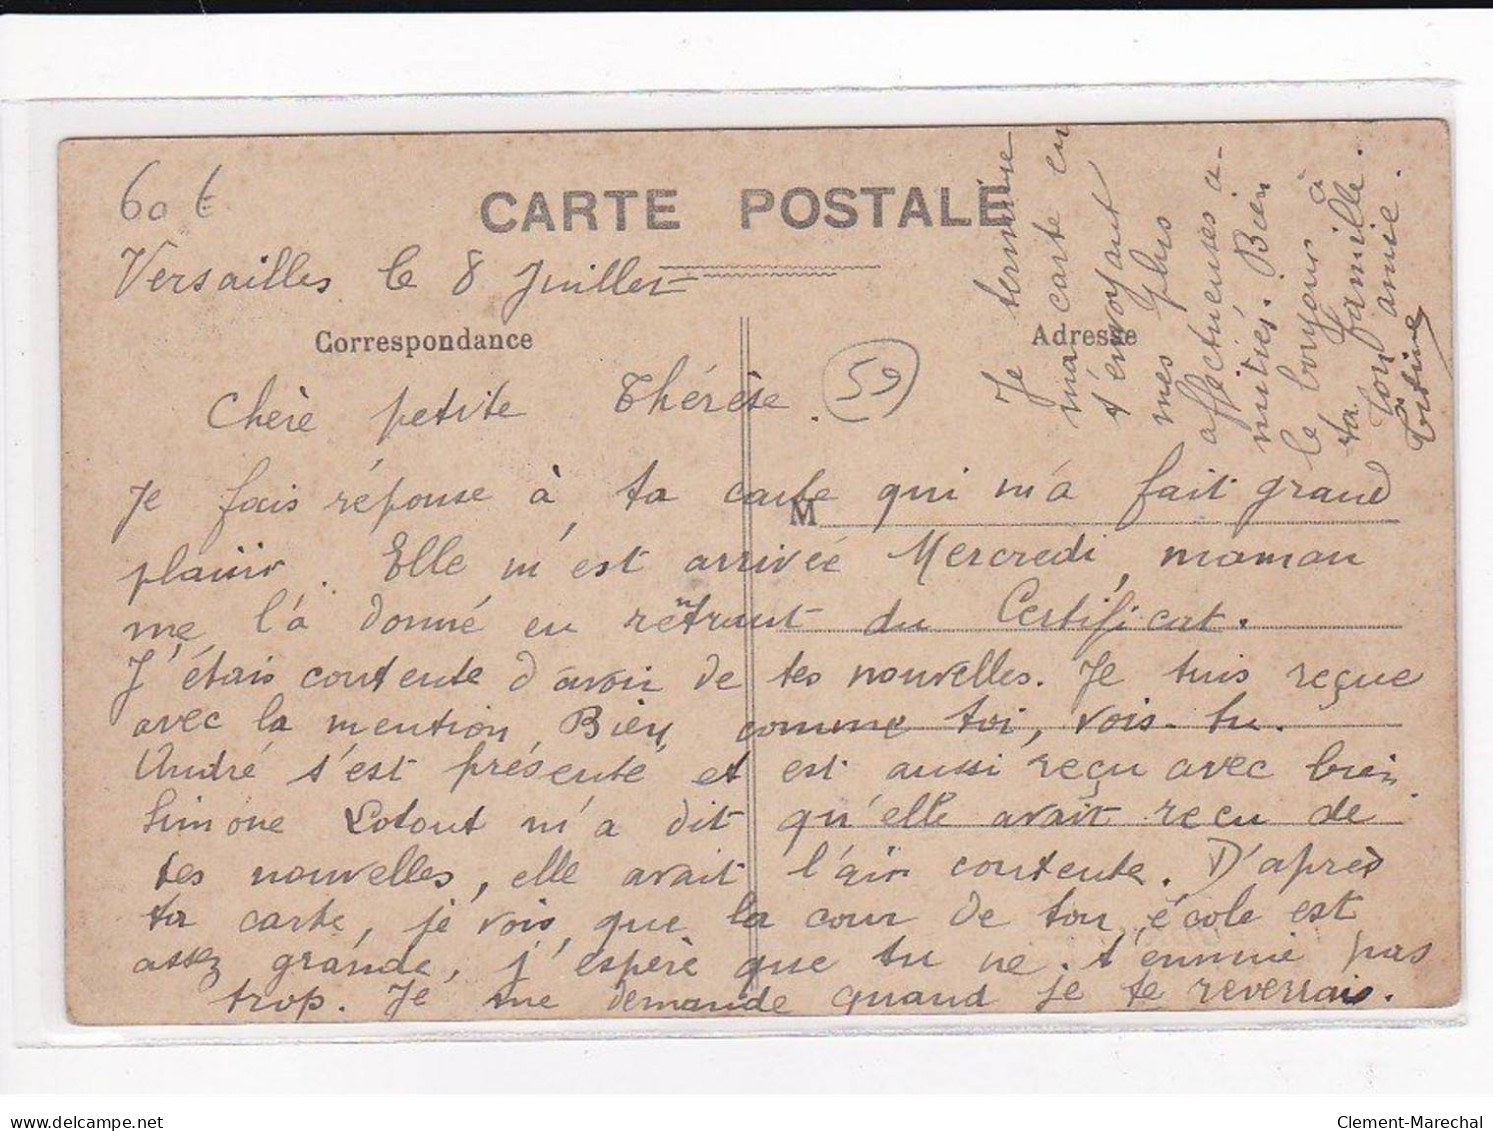 60 €
CARTE POSTALE
Versailles le 8 Juillet
Correspondance
Adresse
59
Chère petite Thérèse.
M
Je fais réponse à ta carte qui m'a fait grand
plaisir. Elle m'est arrivée Mercredi, maman
me l'a donné en rentrant du Certificat.
J'étais contente d'avoir de tes nouvelles. Je suis reçue
avec la mention Bien, comme toi, vois-tu.
André s'est présenté et est aussi reçu avec bien.
Simone Lotout m'a dit qu'elle avait reçu de
tes nouvelles, elle avait l'air contente. D'après
ta carte, je vois que la cour de ton école est
assez grande, j'espère que tu ne t'ennuie pas
trop. Je me demande quand je te reverrais.
Je termine
ma carte en
t'envoyant
mes plus
affectueuses a-
mitiés. Bien
le bonjour à
ta famille.
Ton amie.
Titine
www.delcampe.net
Clement-Marechal